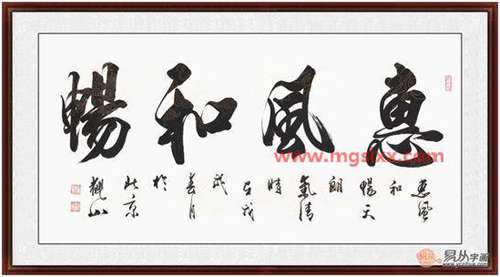 惠風和暢
惠風
和
暢天
朗
氣清
時
在戊
戌
春月
於
北京
觀山
易从字画